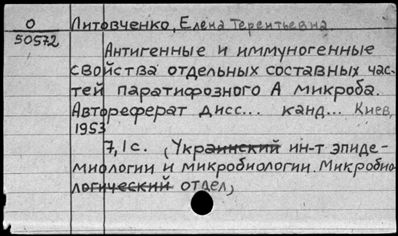 О Литовченко, Елена Терентьевна
50572
Антигенные и иммуногенные
свойства отдельных составных час-
тей паратифозного А микроба.
Автореферат дисс... канд... Киев,
1953
7,1 с. (Украинский ин-т эпиде-
миологии и микробиологии. Микробио-
логический отдел)